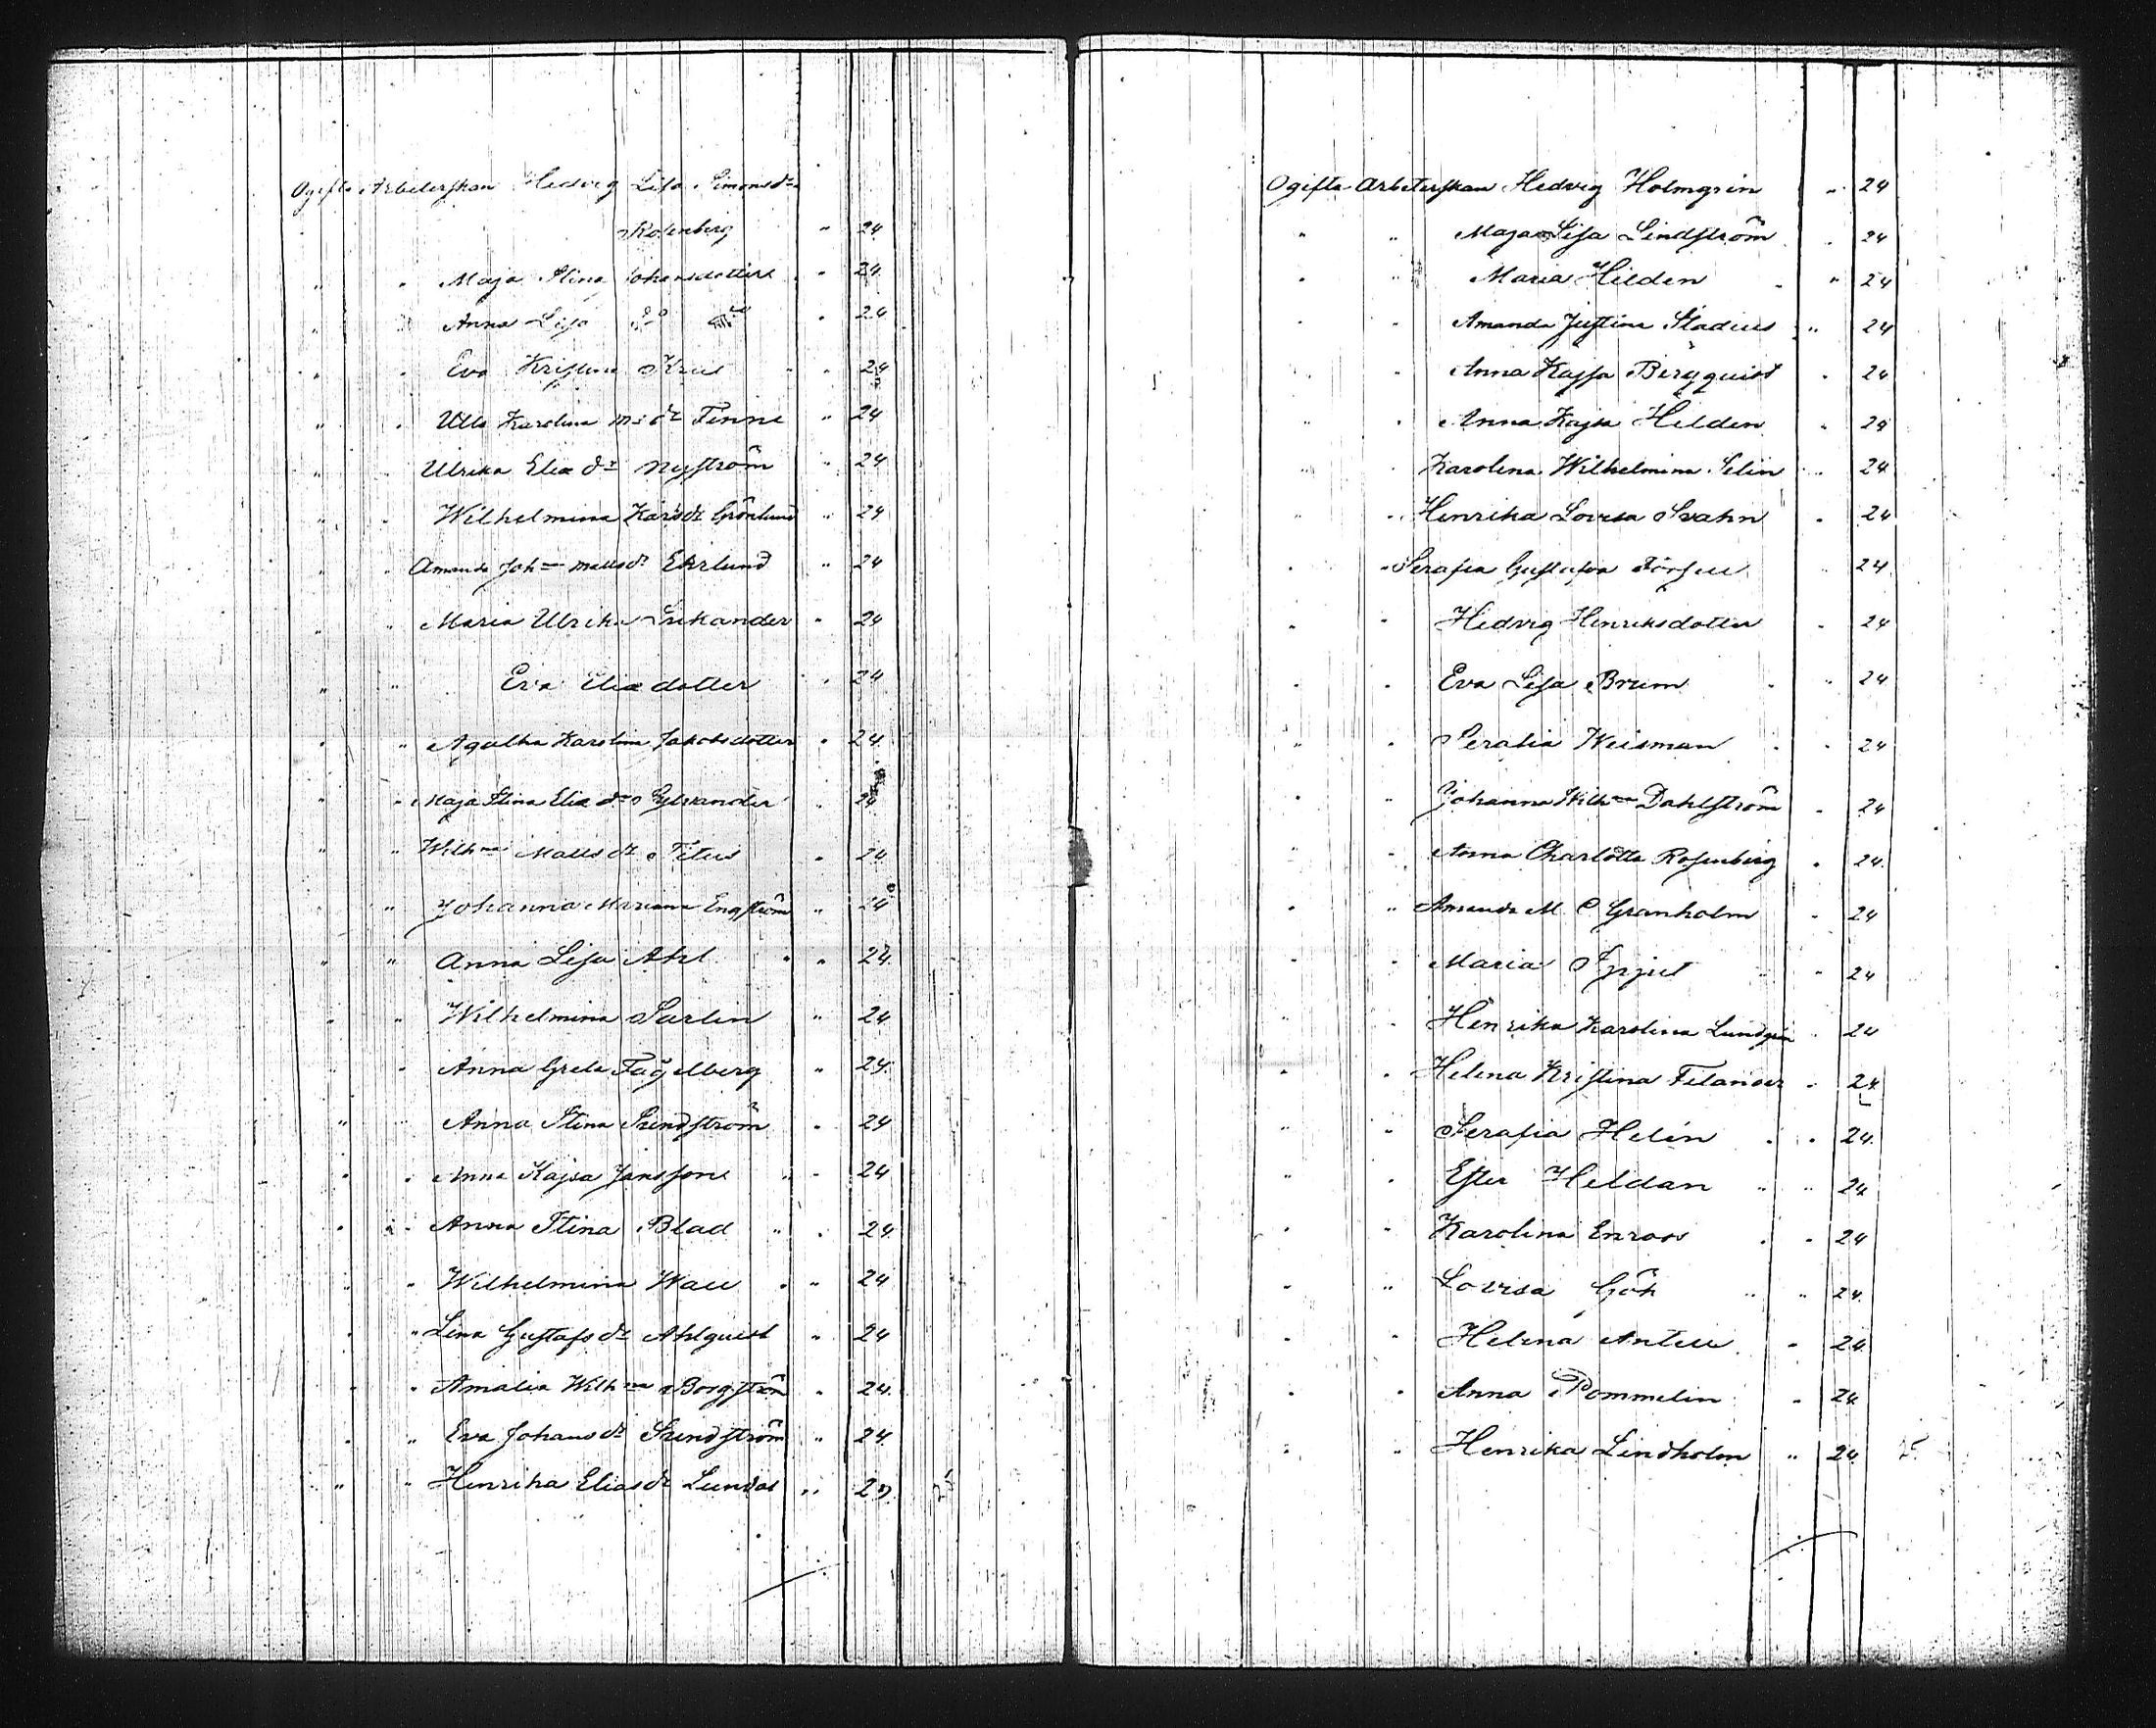 Ogifta Arbeterskan Hedvig Lisa Simonsdr
Rosenberg " 24
" " Maja Stina Johansdotter " 24
" " Anna Lisa do " 24
" " Eva Kristina " 24
" " Ulla Karolina Ms dr Finne " 24
" " Ulrika Eliæ dr Nyström " 24
" " Wilhelmina Karlsdr Grönlund " 24
" " Amanda Joh=na Mattsdr Ekrlund " 24
" " Maria Ulrika " 24
" " Eva Eliædotter " 24
" " Agatha Karolina Jakobsdotter " 24
" " Maja Stina Eliæ dr Sylvander " 24
" " Wilh=na Mattsdr Titus " 24
" Johanna Mariana Engström " 24
" " Anna Lisa Ahl " " 24
" " Wilhelmina Sarlin " 24
" Anna Greta Fågelberg " 24
" " Anna Stina Lindström " 24
" " Anna Kajsa Jansson " " 24
" " Anna Stina Blad " " 24
" " Wilhelmina Wall " " 24
" " Lina Gustafsdr Ahlquist " 24
" " Amalia Wilh=na Borgström " 24
" " Eva Johansdr Lindström " 24
" " Henrika Eliasdr Lundal " 24
Ogifta Arbeterskan Hedvig Holmgren " 24
" " Maja Lisa Lindström " 24
" " Maria Hilden " " 24
" " Amanda Justina Stadius " 24
" " Anna Kajsa Bergquist " 24
" " Anna Kajsa Helden " 24
" " Karolina Wilhelmina Selin " 24
" " Henrika Lovisa Svahn " 24
" " Serafia Gustafva " 24
" " Hedvig Henriksdotter " 24
" " Eva Lisa Brum " " 24
" " Serafia Weisman " " 24
" " Johanna Wilh=na Dahlström " 24
" " Anna Charlotta Rosenberg " 24
" " Amanda M C Granholm " 24
" " Maria " " 24
" " Henrika Karolina Lundgren " 24
" " Helena Kristina Filander " 24
" " Serafia Helin " " 24
" " Ester Heldan " " 24
" " Karolina Enroos " " 24
" " Lovisa Gök " " 24
" " Helena Antell " 24
" " Anna Pommelin " 24
" " Henrika Lindholm " 24